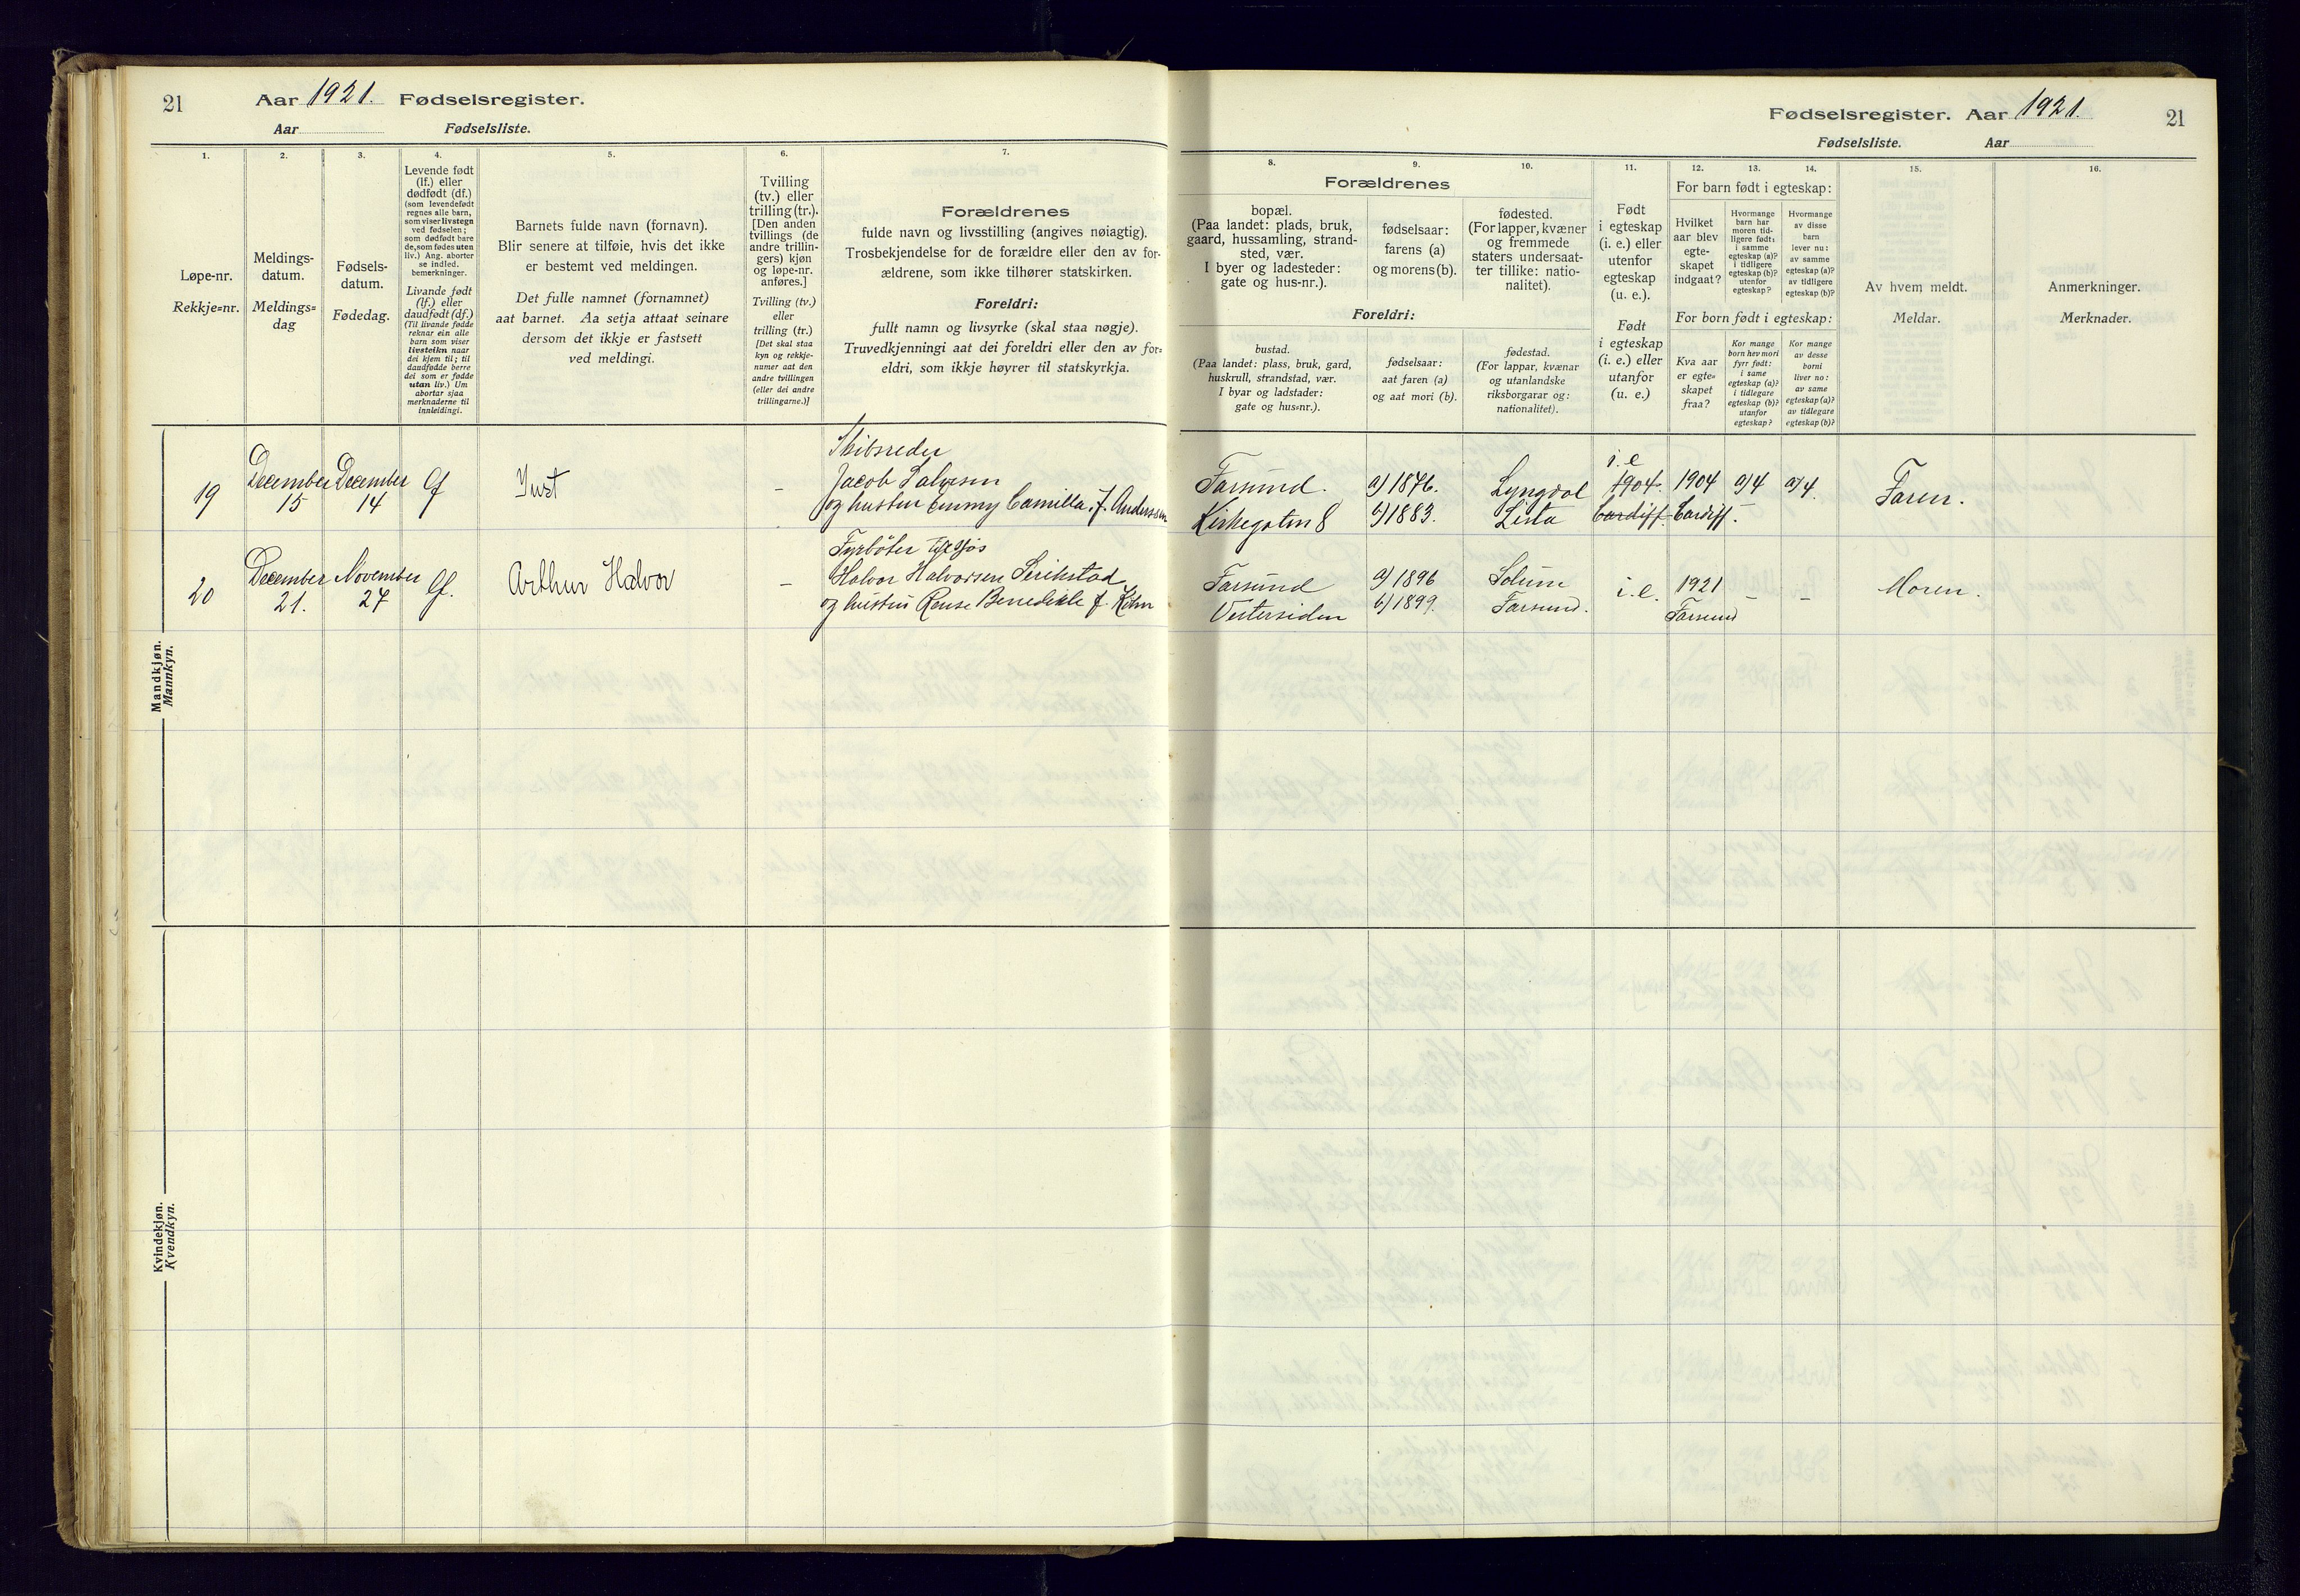 21
Aar 1921. Fødselsregister.
Aar Fødselsliste.
Fødselsregister. Aar 1921.
21
Fødselsliste. Aar
1.
Løpe-nr.
Rekkje=nr.
2.
Meldings-
datum.
Meldings=
dag
3.
Fødsels-
datum.
Fødedag.
4.
Levende født
(lf.) eller
dødfødt (df.)
(som levendefødt
regnes alle barn,
som viser livstegn
ved fødselen;
som dødfødt bare
de, som fødes uten
liv.) Ang. aborter
se indled.
bemerkninger.
Livande født
(lf.) eller
daudfødt (df.)
(Til livande fødde
reknar ein alle
barn som viser
livsteikn naar
dei kjem til; til
daudfødde berre
dei som er fødde
utan liv.) Um
abortar sjaa
merknaderne til
innleidingi.
5.
Barnets fulde navn (fornavn).
Blir senere at tilføie, hvis det ikke
er bestemt ved meldingen.
Det fulle namnet (fornamnet)
aat barnet. Aa setja attaat seinare
dersom det ikkje er fastsett
ved meldingi.
6.
Tvilling
(tv.) eller
trilling (tr.).
[Den anden
tvillings (de
andre trillin-
gers) kjøn
og løpe-nr.
anføres.]
Tvilling (tv.)
eller
trilling (tr.)
[Det skal staa
kyn og rekkje-
numer aat den
andre tvillingen
(eller dei andre
trillingarne.)]
7.
Forældrenes
fulde navn og livsstilling (angives nøiagtig).
Trosbekjendelse for de forældre eller den av for-
ældrene, som ikke tilhører statskirken.
Foreldri:
fullt namn og livsyrke (skal staa nøgje).
Truvedkjenningi aat dei foreldri eller den av for=
eldri, som ikkje høyrer til statskyrkja.
Forældrenes
8.
bopæl.
(Paa landet: plads, bruk,
gaard, hussamling, strand-
sted, vær.
I byer og ladesteder:
gate og hus-nr.).
9.
fødselsaar:
farens (a)
og morens (b).
10.
fødested.
(For lapper, kvæner
og fremmede
staters undersaat-
ter tillike: natio-
nalitet).
Foreldri:
bustad.
(Paa landet: plass, bruk, gard,
huskrull, strandstad, vær.
I byar og ladstader:
gate og hus=nr.).
fødselsaar:
aat faren (a)
og aat mori (b).
fødestad.
(For lappar, kvænar
og utanlandske
riksborgarar og:
nationalitet).
11.
Født
i egteskap
(i. e.) eller
utenfor
egteskap
(u. e.).
Født
i egteskap
(i. e.) eller
utanfor
(u. e.)
12. 13. 14.
For barn født i egteskap:
Hvilket
aar blev
egte-
skapet
indgaat?
Hvormange
barn har
moren tid-
ligere født:
i samme
egteskap (a)?
i tidligere
egteskap (b)?
utenfor
egteskap?
Hvormange
av disse
barn
lever nu:
av samme
egteskap (a)?
av tidligere
egteskap (b)?
For born født i egteskap:
Kva aar
er egte-
skapet
fraa?
Kor mange
born hev mori
fyrr født:
i same
egteskap (a)?
i tidlegare
egteskap (b)?
utanfor
egteskap?
Kor mange
av desse
borni
liver no:
av same
egteskap (a)?
av tidlegare
egteskap (b)?
15.
Av hvem meldt.
Meldar.
16.
Anmerkninger.
Merknader.
Mandkjøn.
Mannkyn.
19
December
15
December
14
lf
Just
–
Skibsreder
Jacob Salvesen
og hustru Emmy Camilla, f. Anderssen
Farsund.
Kirkegaten 8
a) 1876.
b) 1883.
Lyngdal
Lista
i. e
1904.
Cardiff.
1904
Cardiff.
a/4
a/4.
Faren.
20
December
21.
November
27
lf.
Arthur Halvor
–
Fyrbøter
Halvor Halvorsen
og hustru Benedikte f.
Farsund
Vestersiden
a) 1896
b) 1899.
Solum
Farsund.
i. e.
1921
Farsund
–
–
Moren.
Kvindekjøn.
Kvendkyn.